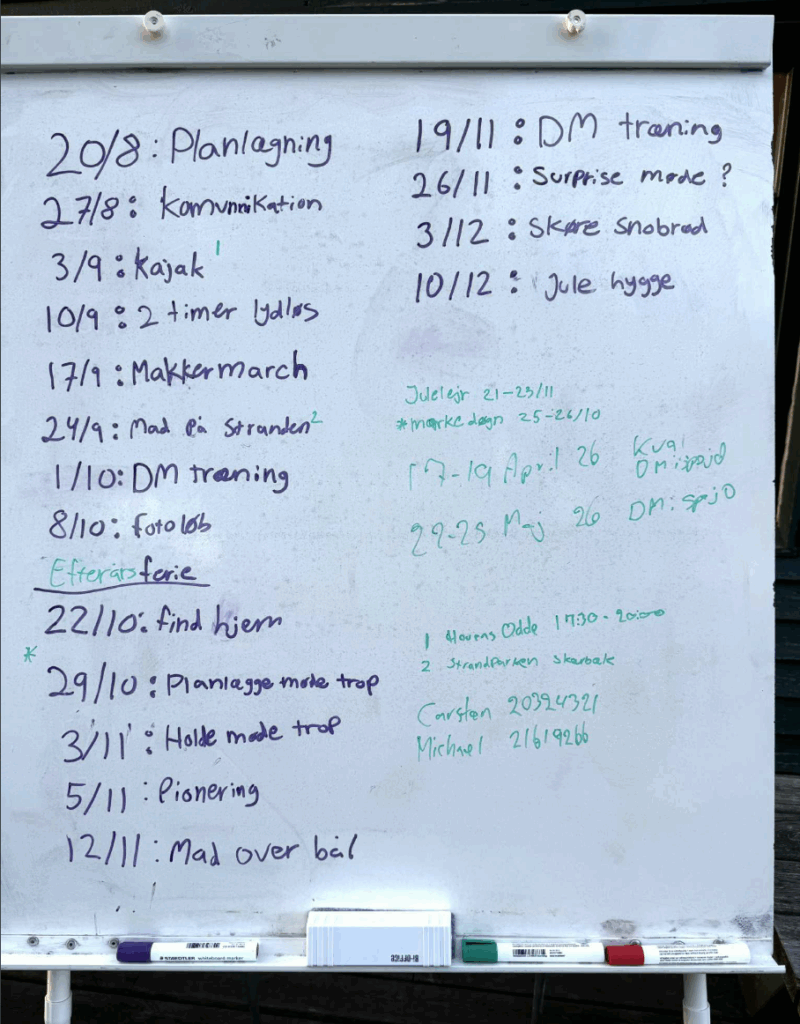 20/8: Planlægning
27/8: Komunnikation
3/9: Kajak 1
10/9: 2 timer lydløs
17/9: Makkermarch
24/9: Mad på Stranden 2
1/10: DM træning
8/10: foto løb
Efterårsferie
22/10: find hjem
*
29/10: Planlægge møde trop
3/11: Holde møde trop
5/11: Pionering
12/11: Mad over bål
19/11: DM træning
26/11: Surprise møde?
3/12: Skøre Snobrød
10/12: Jule hygge
Julelejr 21-23/11
*mørke døgn 25-26/10
17-19 April 26 Kval
DM i spejd
22-25 Maj 26 DM i spejd
1 Hovens Odde 17:30-20:00
2 Strandparken Skærbæk
Carsten 20324321
Michael 21619266
STAEDTLER whiteboard marker
BI-OFFICE